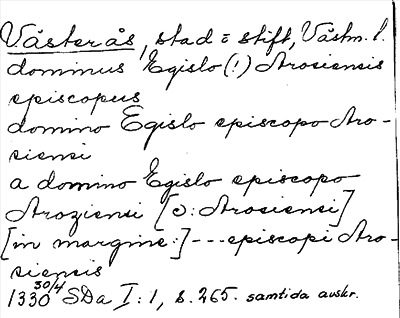 Västerås, stad o stift, Västm. l.
dominus Egislo (!) Arosiensis
episcopus
domino Egislo episcopo Aro-
siensi
a domino Egislo episcopo
Aroziensi [ɔ: Arosiensi]
[in margine:] --- episcopi Aro-
siensis
1330 30/4 SDa I: 1, s. 265. samtida avskr.